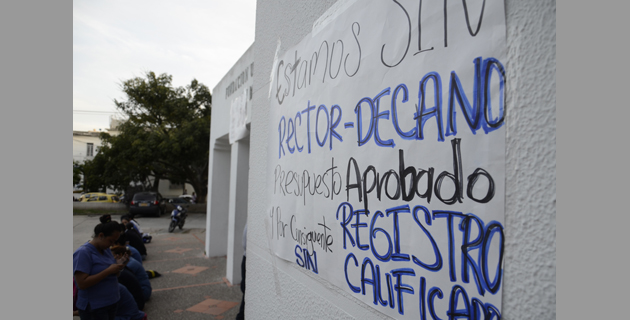 Estamos SIN
RECTOR-DECANO
Presupuesto Aprobado
Y Por Consiguiente REGISTRO
SIN CALIFICADO